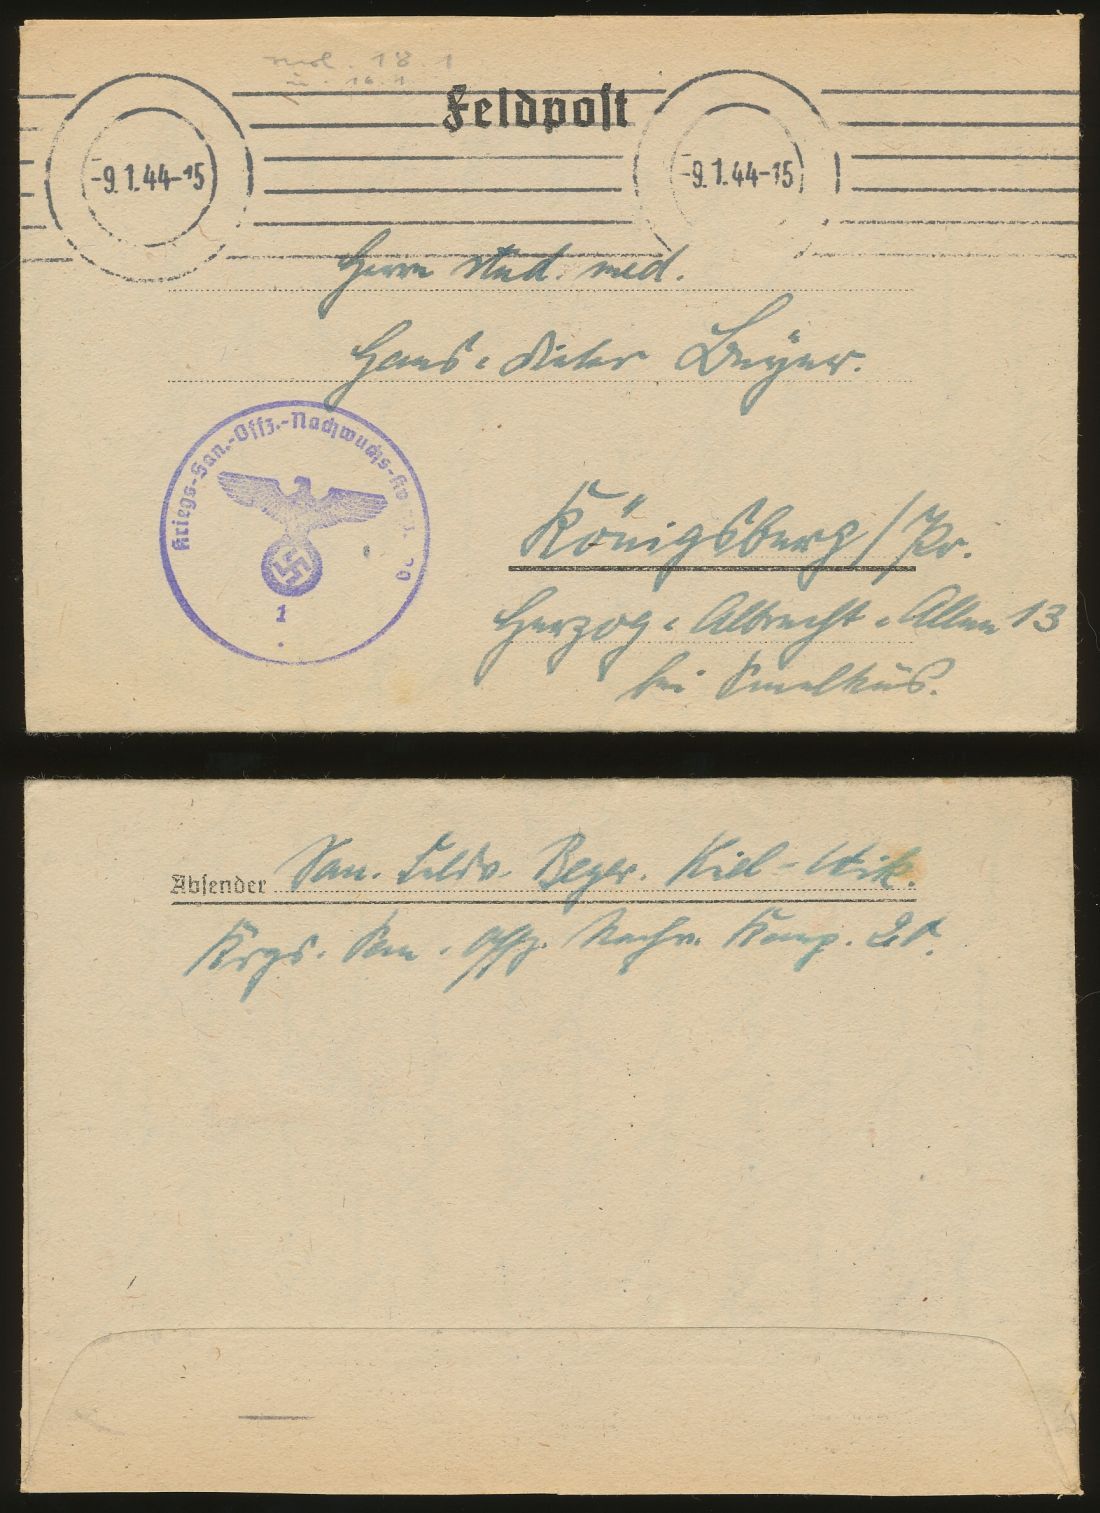 18.1
Feldpost
-9.1.44-15
-9.1.44-15
Herrn stud. med.
Hans-Dieter Beyer.
Kriegs-San.-Offz.-Nachwuchs-
1
Königsberg/Pr.
Herzog-Albrecht-Allee 13
bei
Absender San. Feldw. Beyer. Kiel-Wik.
Krgs. San. Offz. Nachw. Komp.